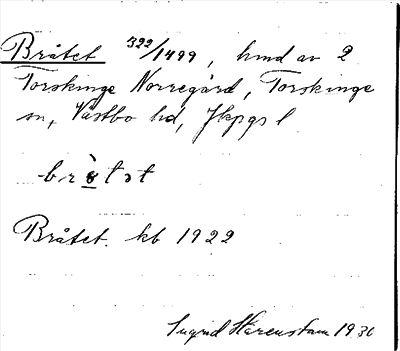 Bråtet 322/1499, hmd av 2
Torskinge Norregård, Torskinge
sn, Västbo hd, Jkpgs l
Bråtet. kb 1922
Ingrid Härenstam 1930